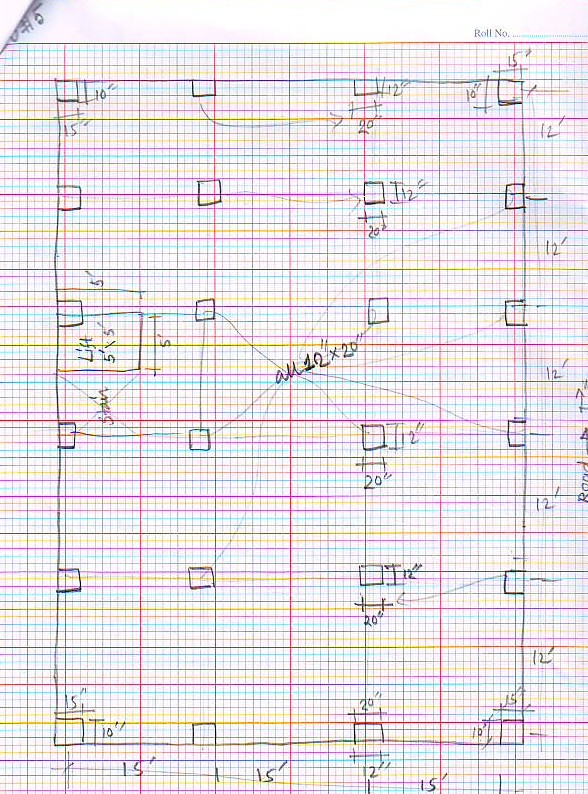 Roll No.
15"
10"
15"
12"
20"
10"
12'
12"
20"
12'
5'
Lift
5'×5'
5'
all 12"×20"
12'
Stair
12"
20"
Road
17'
12'
12"
20"
12'
15"
10"
20"
15"
10"
12"
15'
15'
15'